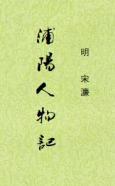 明 宋濂
浦陽人物記